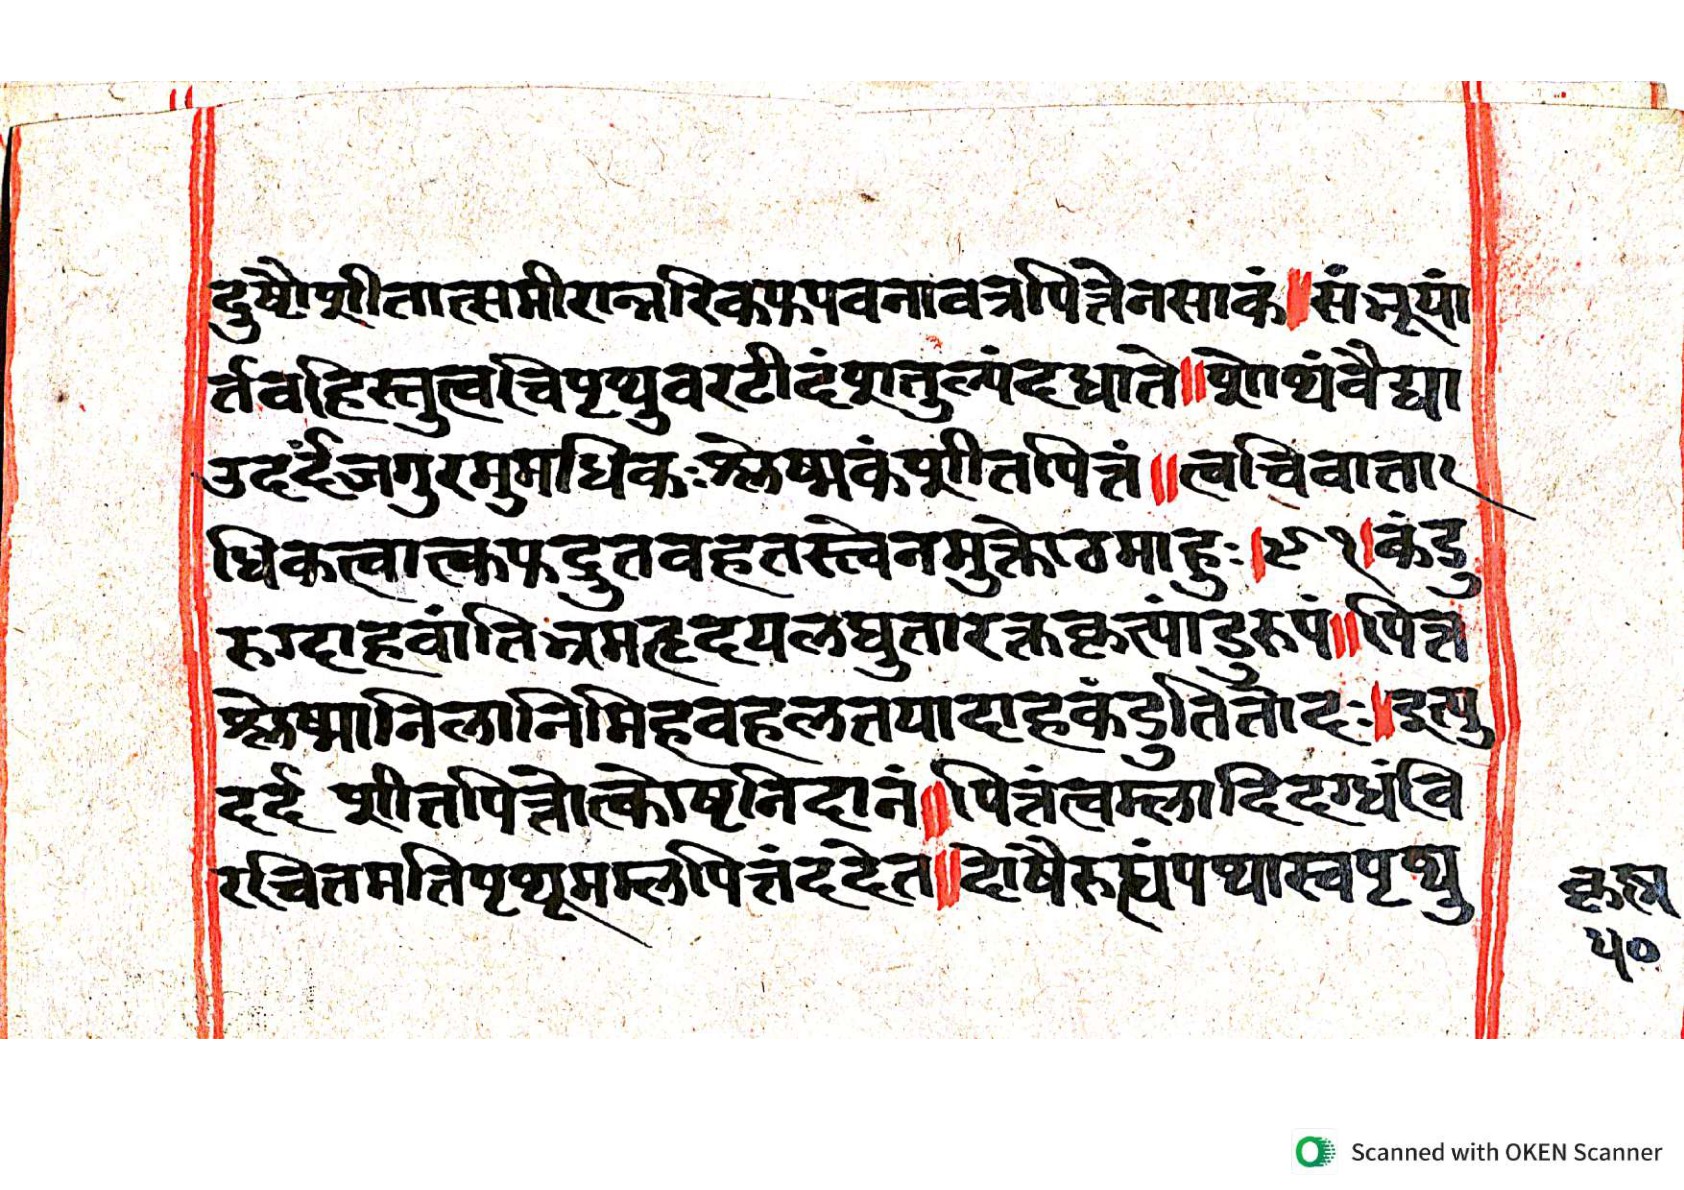 दुष्टौशीतात्समीरान्नरिकफपवनावत्रपित्तेनसाकं॥संभूयां
र्तवहिस्तुत्वचिपृथुवरटीदंशतुल्यंदधाते॥शोथंवैद्या
उदर्दंजगुरमुमधिकःश्लेष्मकंशीतपित्तं॥त्वचिवाता
धिकत्वात्कफद्रुतवहतस्त्वेनमुक्तोठमाहुः।९१।कंडु
रुग्दाहवांतिभ्रमतहृदयलघुतारक्तकृत्पांडुरुपं॥पित्त
श्लेष्मानिलानिमिहवहलतयादाहकंडुतितोदः।इत्यु
दर्द शीतपित्तोत्कोषृनिदानं॥पित्तंत्वम्लादिदग्धंवि
रचितमतिपृथूमम्लपित्तंददेत॥दोषैरुघ्घंपथास्वपृथु
५०
Scanned with OKEN Scanner